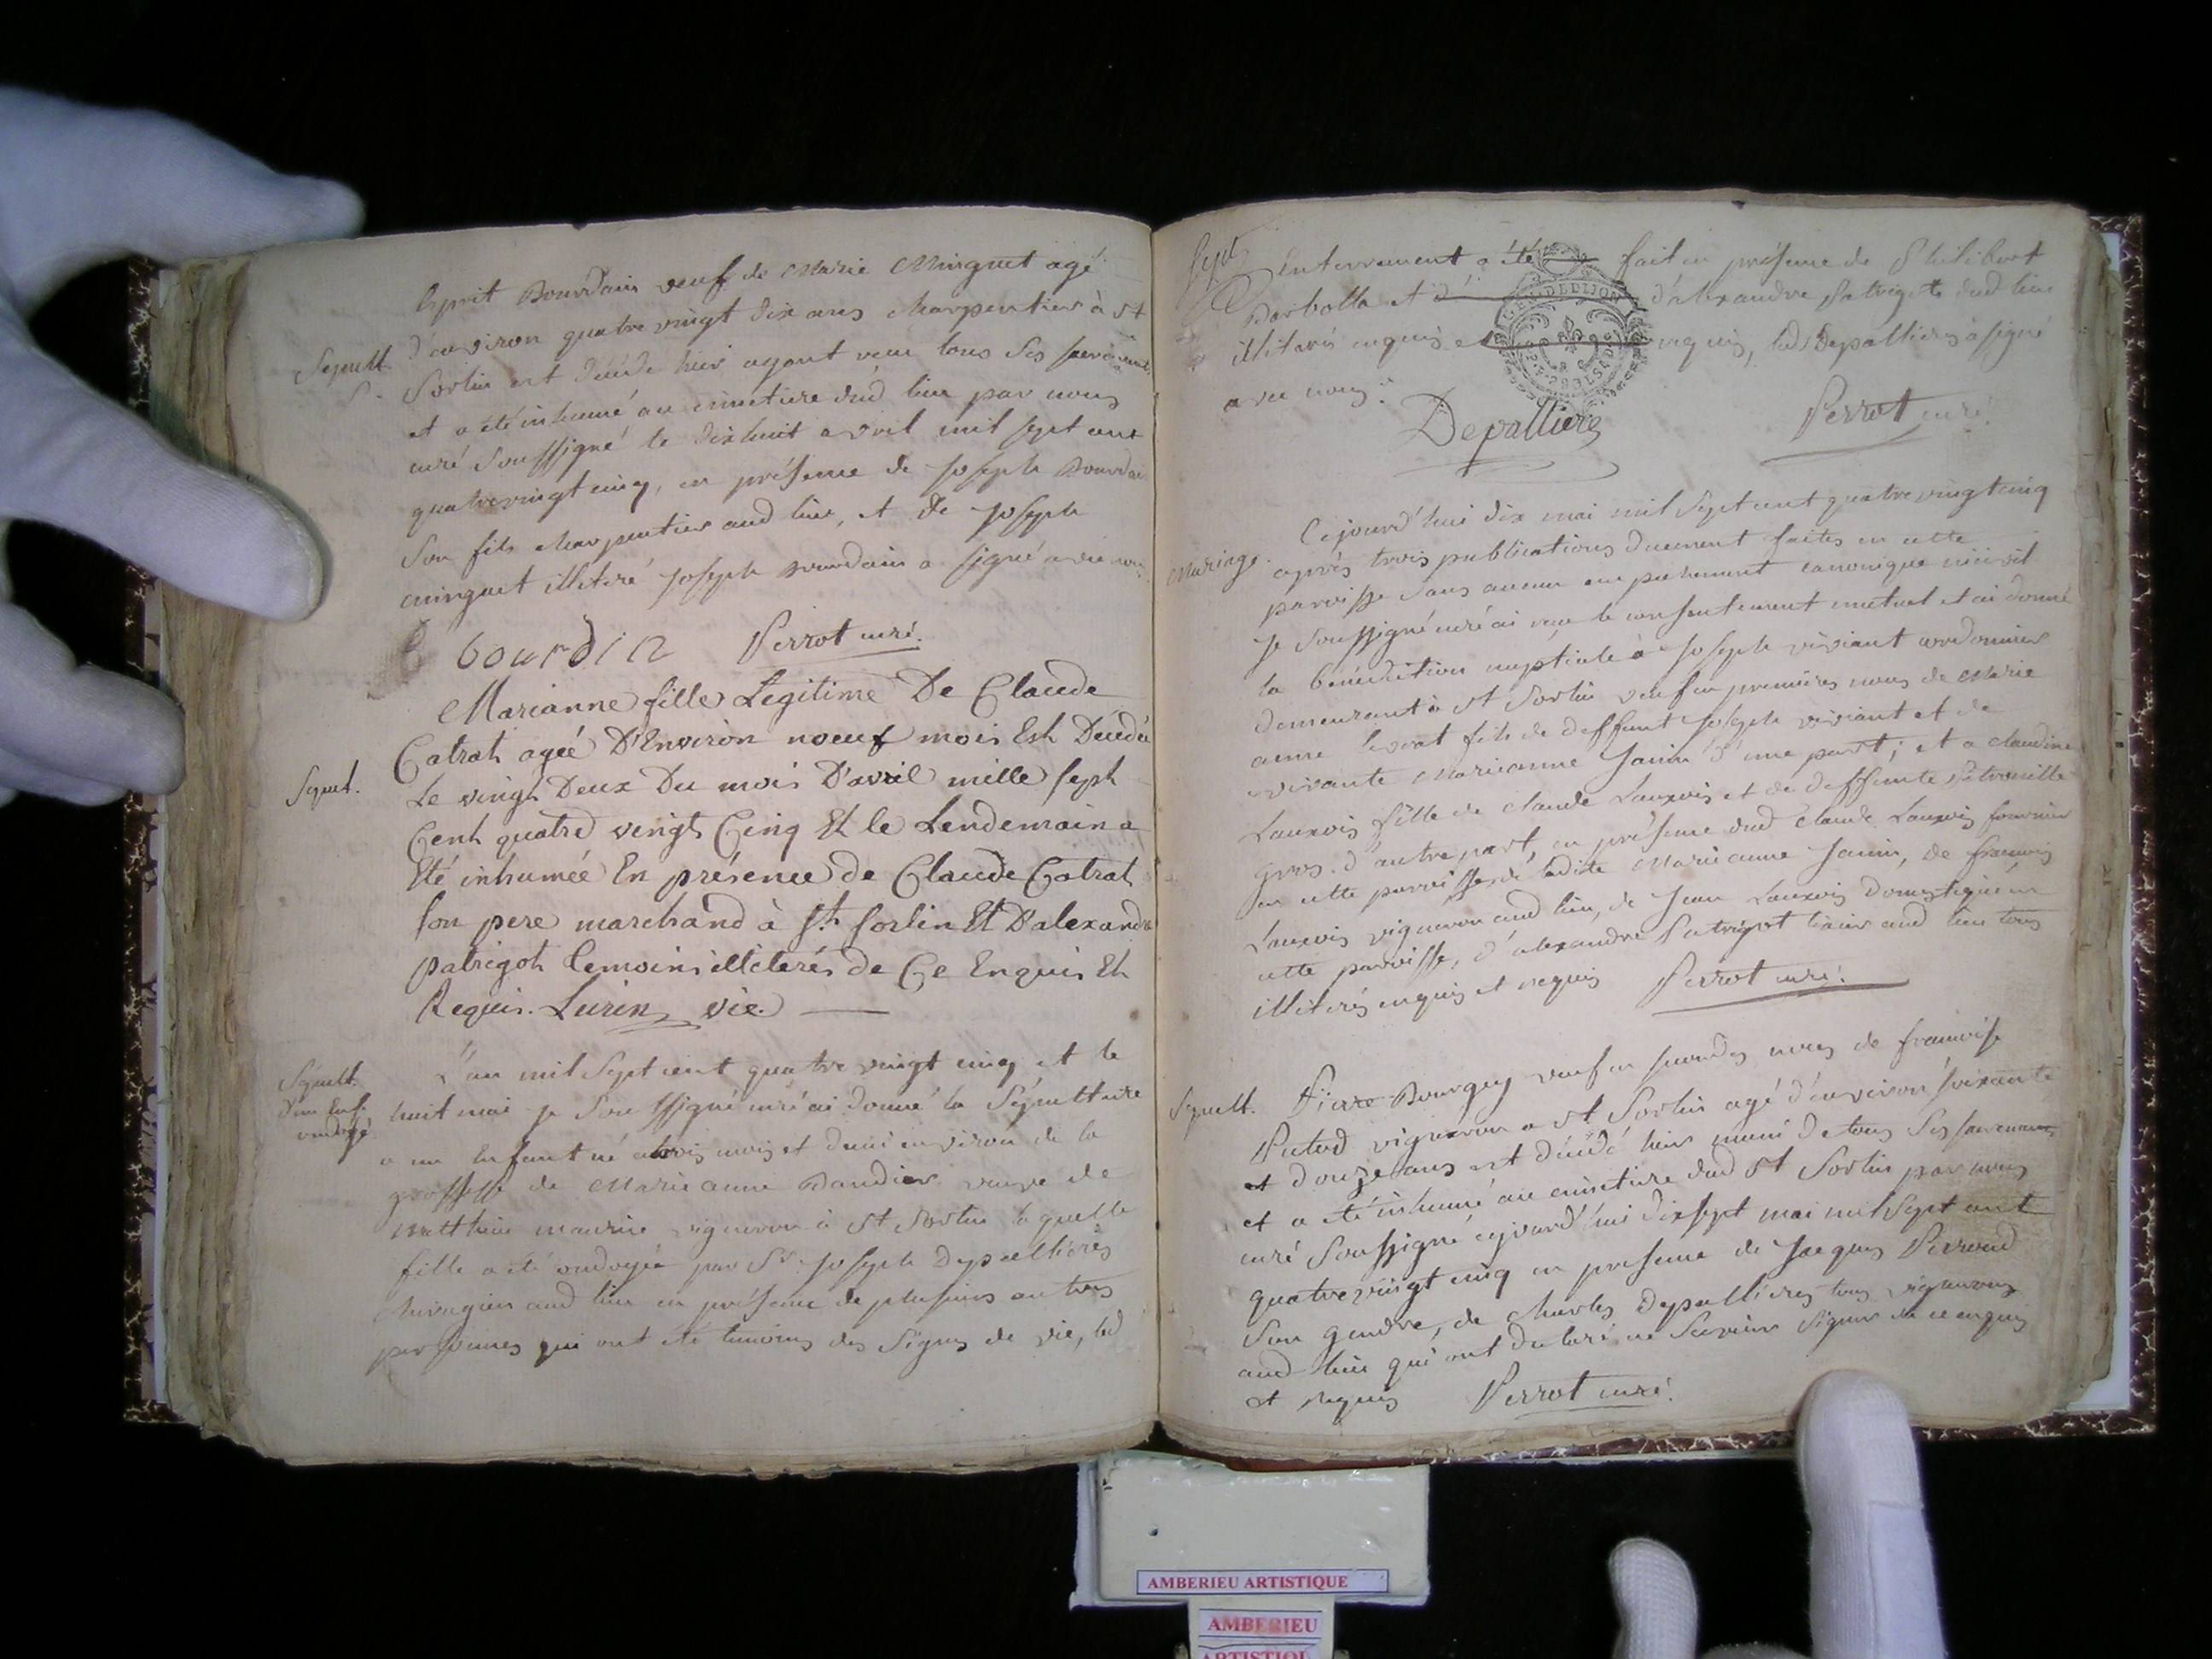 Esprit Bourdain veuf de Marie Minguet agé
d'environ quatre vingt dix ans charpentier à St
Sepult.
Sorlin est décédé hier ayant reçu tous ses sacremens
et a été inhumé au cimetiere dud lieu par nous
curé soussigné le dix huit avril mil sept cent
quatrevingt cinq, en présence de Joseph Bourdain
son fils charpentier aud lieu, et de Joseph
minguet illiteré Joseph Bourdain a signé avec nous.
bourdin Perrot curé.
Marianne fille Légitime De Claude
Catrat agée D'Environ noeuf mois Est Décédée
Sepul.
Le vingt Deux Du mois D'avril mille sept
Cent quatre vingt Cinq Et le Lendemain a
Eté inhumée En présence de Claude Catrat
son pere marchand à St. sorlin Et D'alexandre
patrigot temoins illiterés de Ce Enquis Et
Requis. Lurin vic.
Sépult.
d'un Enf.
ondoyé
L'an mil sept cent quatre vingt cinq et le
huit mai je soussigné curé ai donné la sépulture
a un Enfant né a trois mois et demi environ de la
grossesse de Marieanne Baudier veuve de
Matthieu maurice vigneron à St Sorlin laquelle
fille a été ondoyée par Sr. Joseph Depallières
chirurgien aud lieu en présence de plusieurs autres
personnes qui ont été temoins des signes de vie, led
enterrement a été fait en présence de Philibert
Barbolla et d'alexandre Patrigot dud lieu
illiterés enquis et requis, led Depallieres a signé
avec nous.
Depallieres Perrot curé.
Mariage.
Cejourd'hui dix mai mil sept cent quatre vingt cinq
après trois publications duement faites en cette
paroisse sans aucun empechement canonique ni civil
Je soussigné curé ai reçu le consentement mutuel et ai donné
la bénédiction nuptiale à Joseph viviant cordonnier
demeurant à St Sorlin veuf en premières noces de Marie
anne fils de deffunt Joseph viviant et de
vivante Marieanne Janin d'une part; et a claudine
Lauxois fille de claude Lauxois et de deffunte Petronille
gros. d'autre part, en présence dud claude Lauxois fournier
en cette paroisse, de ladite Marieanne Janin, de françois
Lauxois vigneron aud lieu, de Jean Lauxois domestique en
cette paroisse, d'alexandre Patrigot aud lieu tous
illiterés enquis et requis Perrot curé.
Sépult.
Pierre Bourgey veuf en secondes noces de francoise
vigneron a St Sorlin agé d'environ soixante
et douze ans est décédé hier muni de tous ses sacremens
et a été inhumé au cimetiere dud St Sorlin par nous
curé soussigné cejourd'hui dix sept mai mil sept cent
quatrevingt cinq en presence de Jacques Perroud
son gendre, de charles depallieres tous vignerons
aud lieu qui ont declaré ne savoir signer de ce enquis
et requis Perrot curé.
AMBERIEU ARTISTIQUE
AMBERIEU